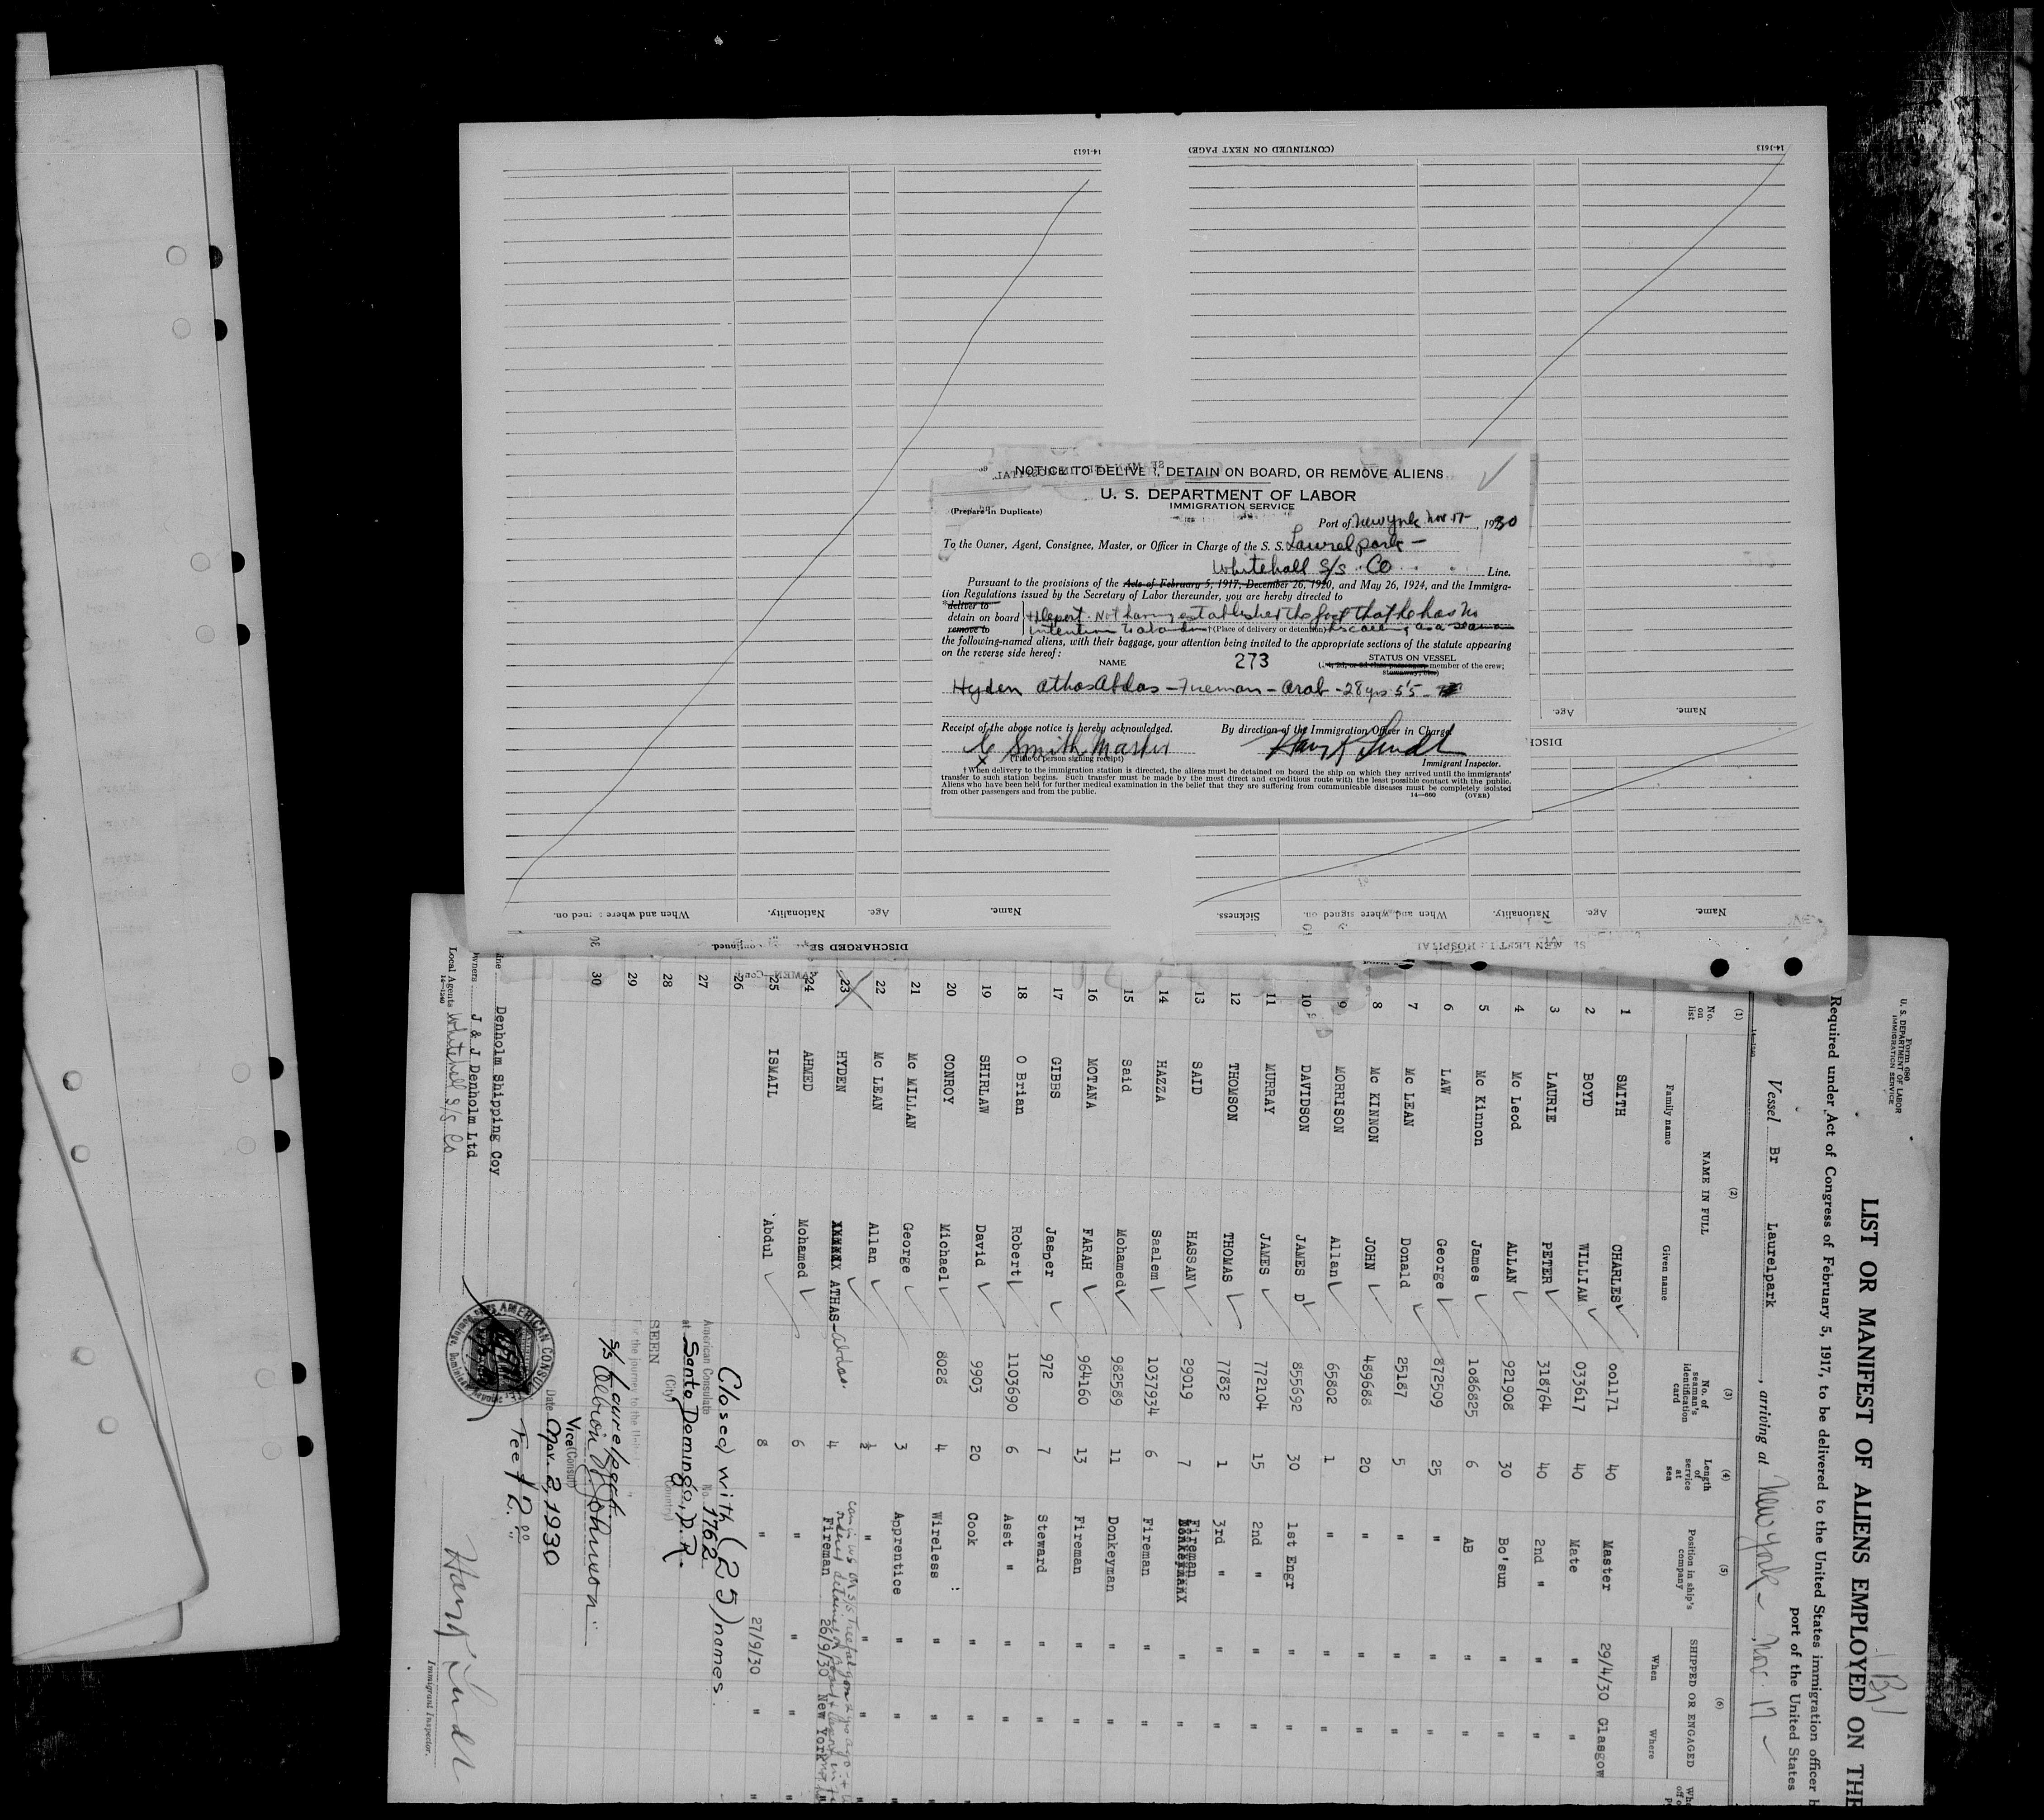 14-1613
(CONTINUED ON NEXT PAGE)
14-1613
NOTICE TO DELIVER, DETAIN ON BOARD, OR REMOVE ALIENS
U. S. DEPARTMENT OF LABOR
IMMIGRATION SERVICE
(Prepare in Duplicate)
Port of New York Nov 17- , 1930
To the Owner, Agent, Consignee, Master, or Officer in Charge of the S. S. Laurelpark -
Whitehall S/S Co Line.
Pursuant to the provisions of the Acts of February 5, 1917, December 26, 1920, and May 26, 1924, and the Immigra-
tion Regulations issued by the Secretary of Labor thereunder, you are hereby directed to
*deliver to
detain on board + deport. Not having established the fact that he has no
remove to intention to abandon † (Place of delivery or detention) his calling as a seaman
the following-named aliens, with their baggage, your attention being invited to the appropriate sections of the statute appearing
on the reverse side hereof:
NAME 273 STATUS ON VESSEL
member of the crew;
Hyden Athas Abdas - Fireman - Arab - 28 yrs 5'5
Receipt of the above notice is hereby acknowledged. By direction of the Immigration Officer in Charge
C Smith Master Harry K Lindt
(Title of person signing receipt) Immigrant Inspector.
† When delivery to the immigration station is directed, the aliens must be detained on board the ship on which they arrived until the immigrants'
transfer to such station begins. Such transfer must be made by the most direct and expeditious route with the least possible contact with the public.
Aliens who have been held for further medical examination in the belief that they are suffering from communicable diseases must be completely isolated
from other passengers and from the public. 14-660 (OVER)
Name.
Age.
DISCH
Name.
Age.
Nationality.
When and where signed on.
Sickness.
Name.
Age.
Nationality.
When and where signed on.
SEAMEN LEFT IN HOSPITAL
DISCHARGED SEAMEN—Continued.
Form 680
U. S. DEPARTMENT OF LABOR
IMMIGRATION SERVICE
LIST OR MANIFEST OF ALIENS EMPLOYED ON THE
Required under Act of Congress of February 5, 1917, to be delivered to the United States immigration officer b
port of the United States
Vessel Br Laurelpark , arriving at New York - Nov. 17 -
(1) (2) (3) (4) (5) (6)
No. on list NAME IN FULL No. of seaman's identification card Length of service at sea Position in ship's company SHIPPED OR ENGAGED
Family name Given name When Where
1 SMITH CHARLES 001171 40 Master 29/4/30 Glasgow
2 BOYD WILLIAM 033617 40 Mate " "
3 LAURIE PETER 318764 40 2nd " " "
4 Mc Leod ALLAN 921908 30 Bo'sun " "
5 Mc Kinnon James 1086825 6 AB " "
6 LAW George 872509 25 " " "
7 Mc LEAN Donald 25187 5 " " "
8 Mc KINNON JOHN 489688 20 " " "
9 MORRISON Allan 65802 1 " " "
10 DAVIDSON JAMES D 855692 30 1st Engr " "
11 MURRAY JAMES 772104 15 2nd " " "
12 THOMSON THOMAS 77832 1 3rd " " "
13 SAID HASSAN 29019 7 Fireman " "
14 HAZZA Saalem 1037934 6 Fireman " "
15 Said Mohamed 982589 11 Donkeyman " "
16 MOTANA FARAH 964160 13 Fireman " "
17 GIBBS Jasper 972 7 Steward " "
18 O Brian Robert 1103690 6 Asst " " "
19 SHIRLAW David 9903 20 Cook " "
20 CONROY Michael 8028 4 Wireless " "
21 Mc MILLAN George 3 Apprentice " "
22 Mc LEAN Allan ½ " " "
23 HYDEN ATHAS-Abdas. 4 Fireman 26/9/30 New York
24 AHMED Mohamed 6 " " "
25 ISMAIL Abdul 8 " 27/9/30 "
26
27
28
29
30
Closed with (25) names.
American Consulate No. 1762
at Santo Domingo, D.R.
(City) (Country)
SEEN
For the journey to the United
S/S Laurelpark
Johnson
Vice (Consul)
Date Nov. 2, 1930
Fee $2.00
AMERICAN CONSULATE
Line Denholm Shipping Coy
Owners J & J Denholm Ltd
Local Agents Whitehall S/S Co
14-1240
Harry K Lindt
Immigrant Inspector.